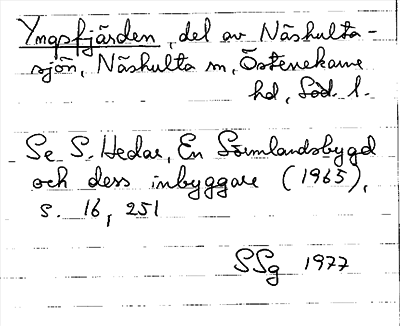 Yngsfjärden, del av Näshulta-
sjön, Näshulta sn, Österrekarne
hd, Söd. l.
Se S. Hedar, En Sörmlandsbygd
och dess inbyggare (1965),
s. 16, 251
SSg 1977